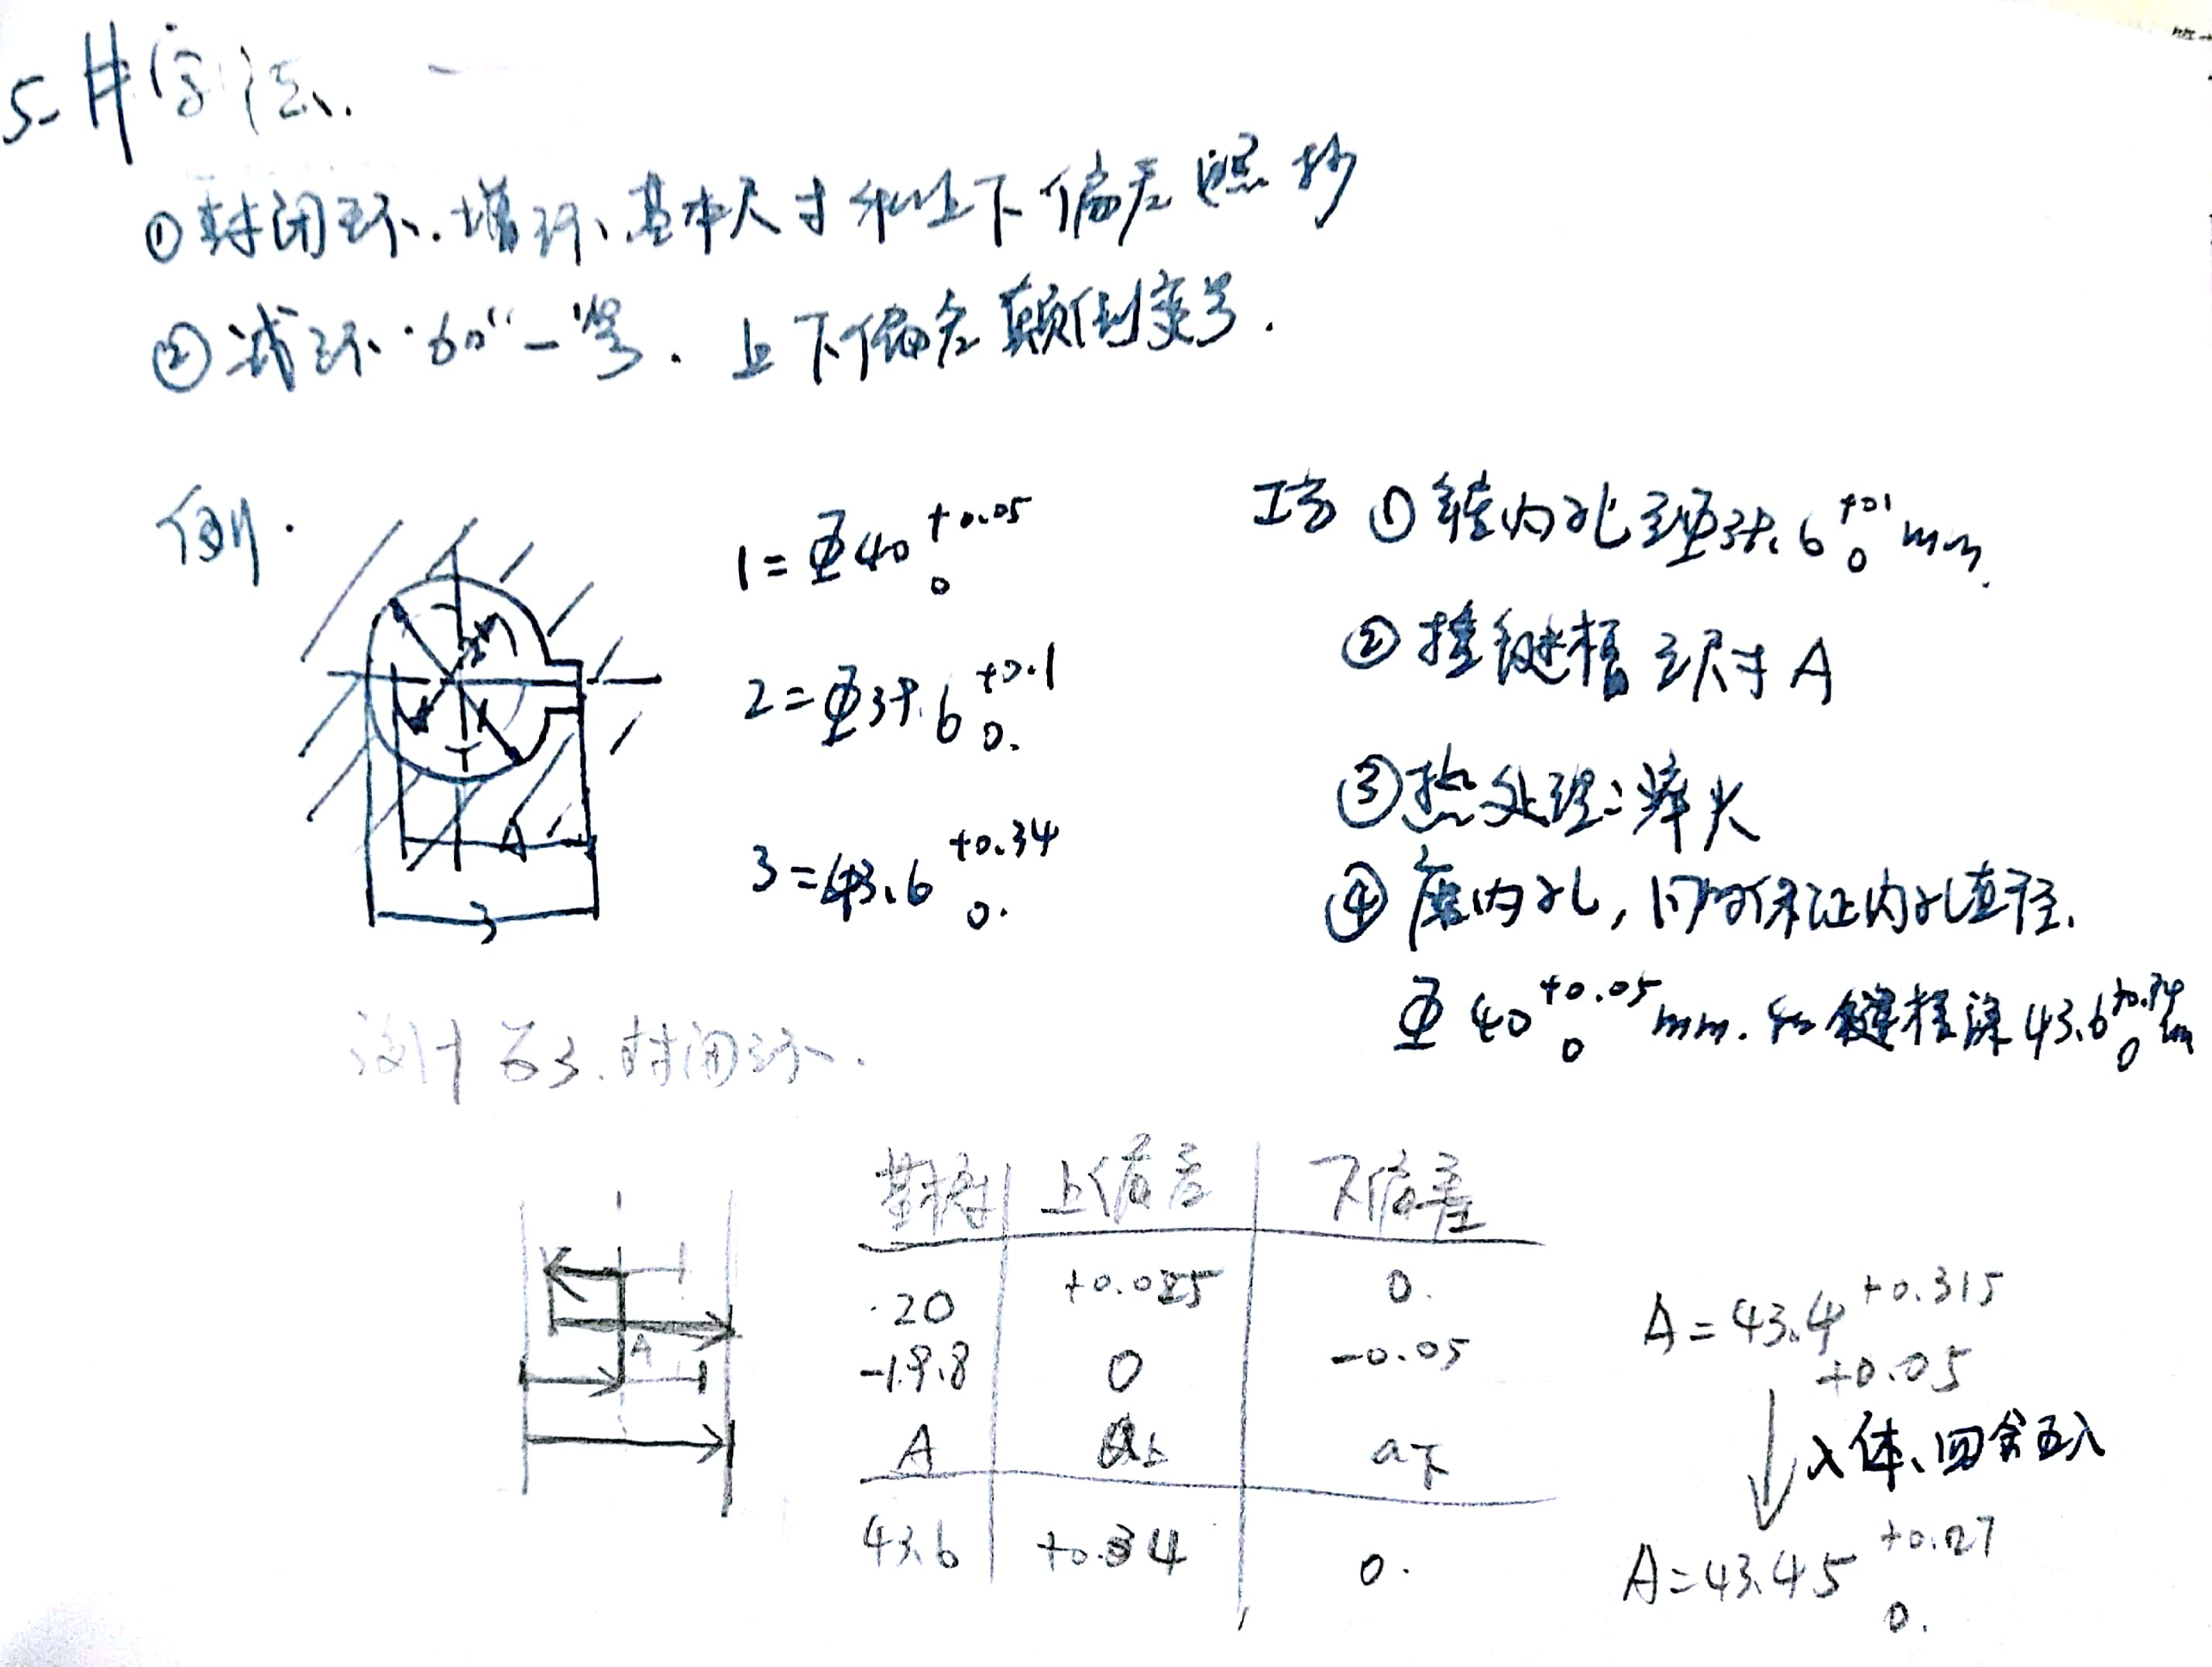 5 井字法.
①封闭环.增环、基本尺寸和上下偏差照抄
②减环·加“-”号.上下偏差颠倒变号.
例.
1=Φ40 +0.05 0
2=Φ39.6 +0.1 0.
3=43.6 +0.34 0.
A
3
工序 ①镗内孔至Φ39.6 +0.1 0 mm.
②插键槽至尺寸A
③热处理:淬火
④磨内孔,同时保证内孔直径.
Φ40 +0.05 0 mm.和键槽深43.6 +0.34 0 m
设计 3.封闭环.
A
上偏差 下偏差
20 +0.025 0.
-19.8 0 -0.05
A a上 a下
43.6 +0.34 0.
A=43.4 +0.315 +0.05
入体、四舍五入
A=43.45 +0.27 0.